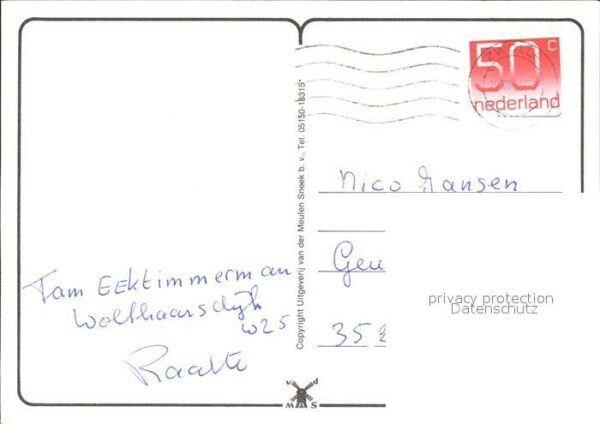 50 c
nederland
Copyright Uitgeverij van der Meulen Sneek b. v., Tel. 05150-18315*
Nico Jansen
Geu
privacy protection
Datenschutz
35
Fam EEktimmerman
Wolthaarsdijk
W25
Raalte
v d
MAS